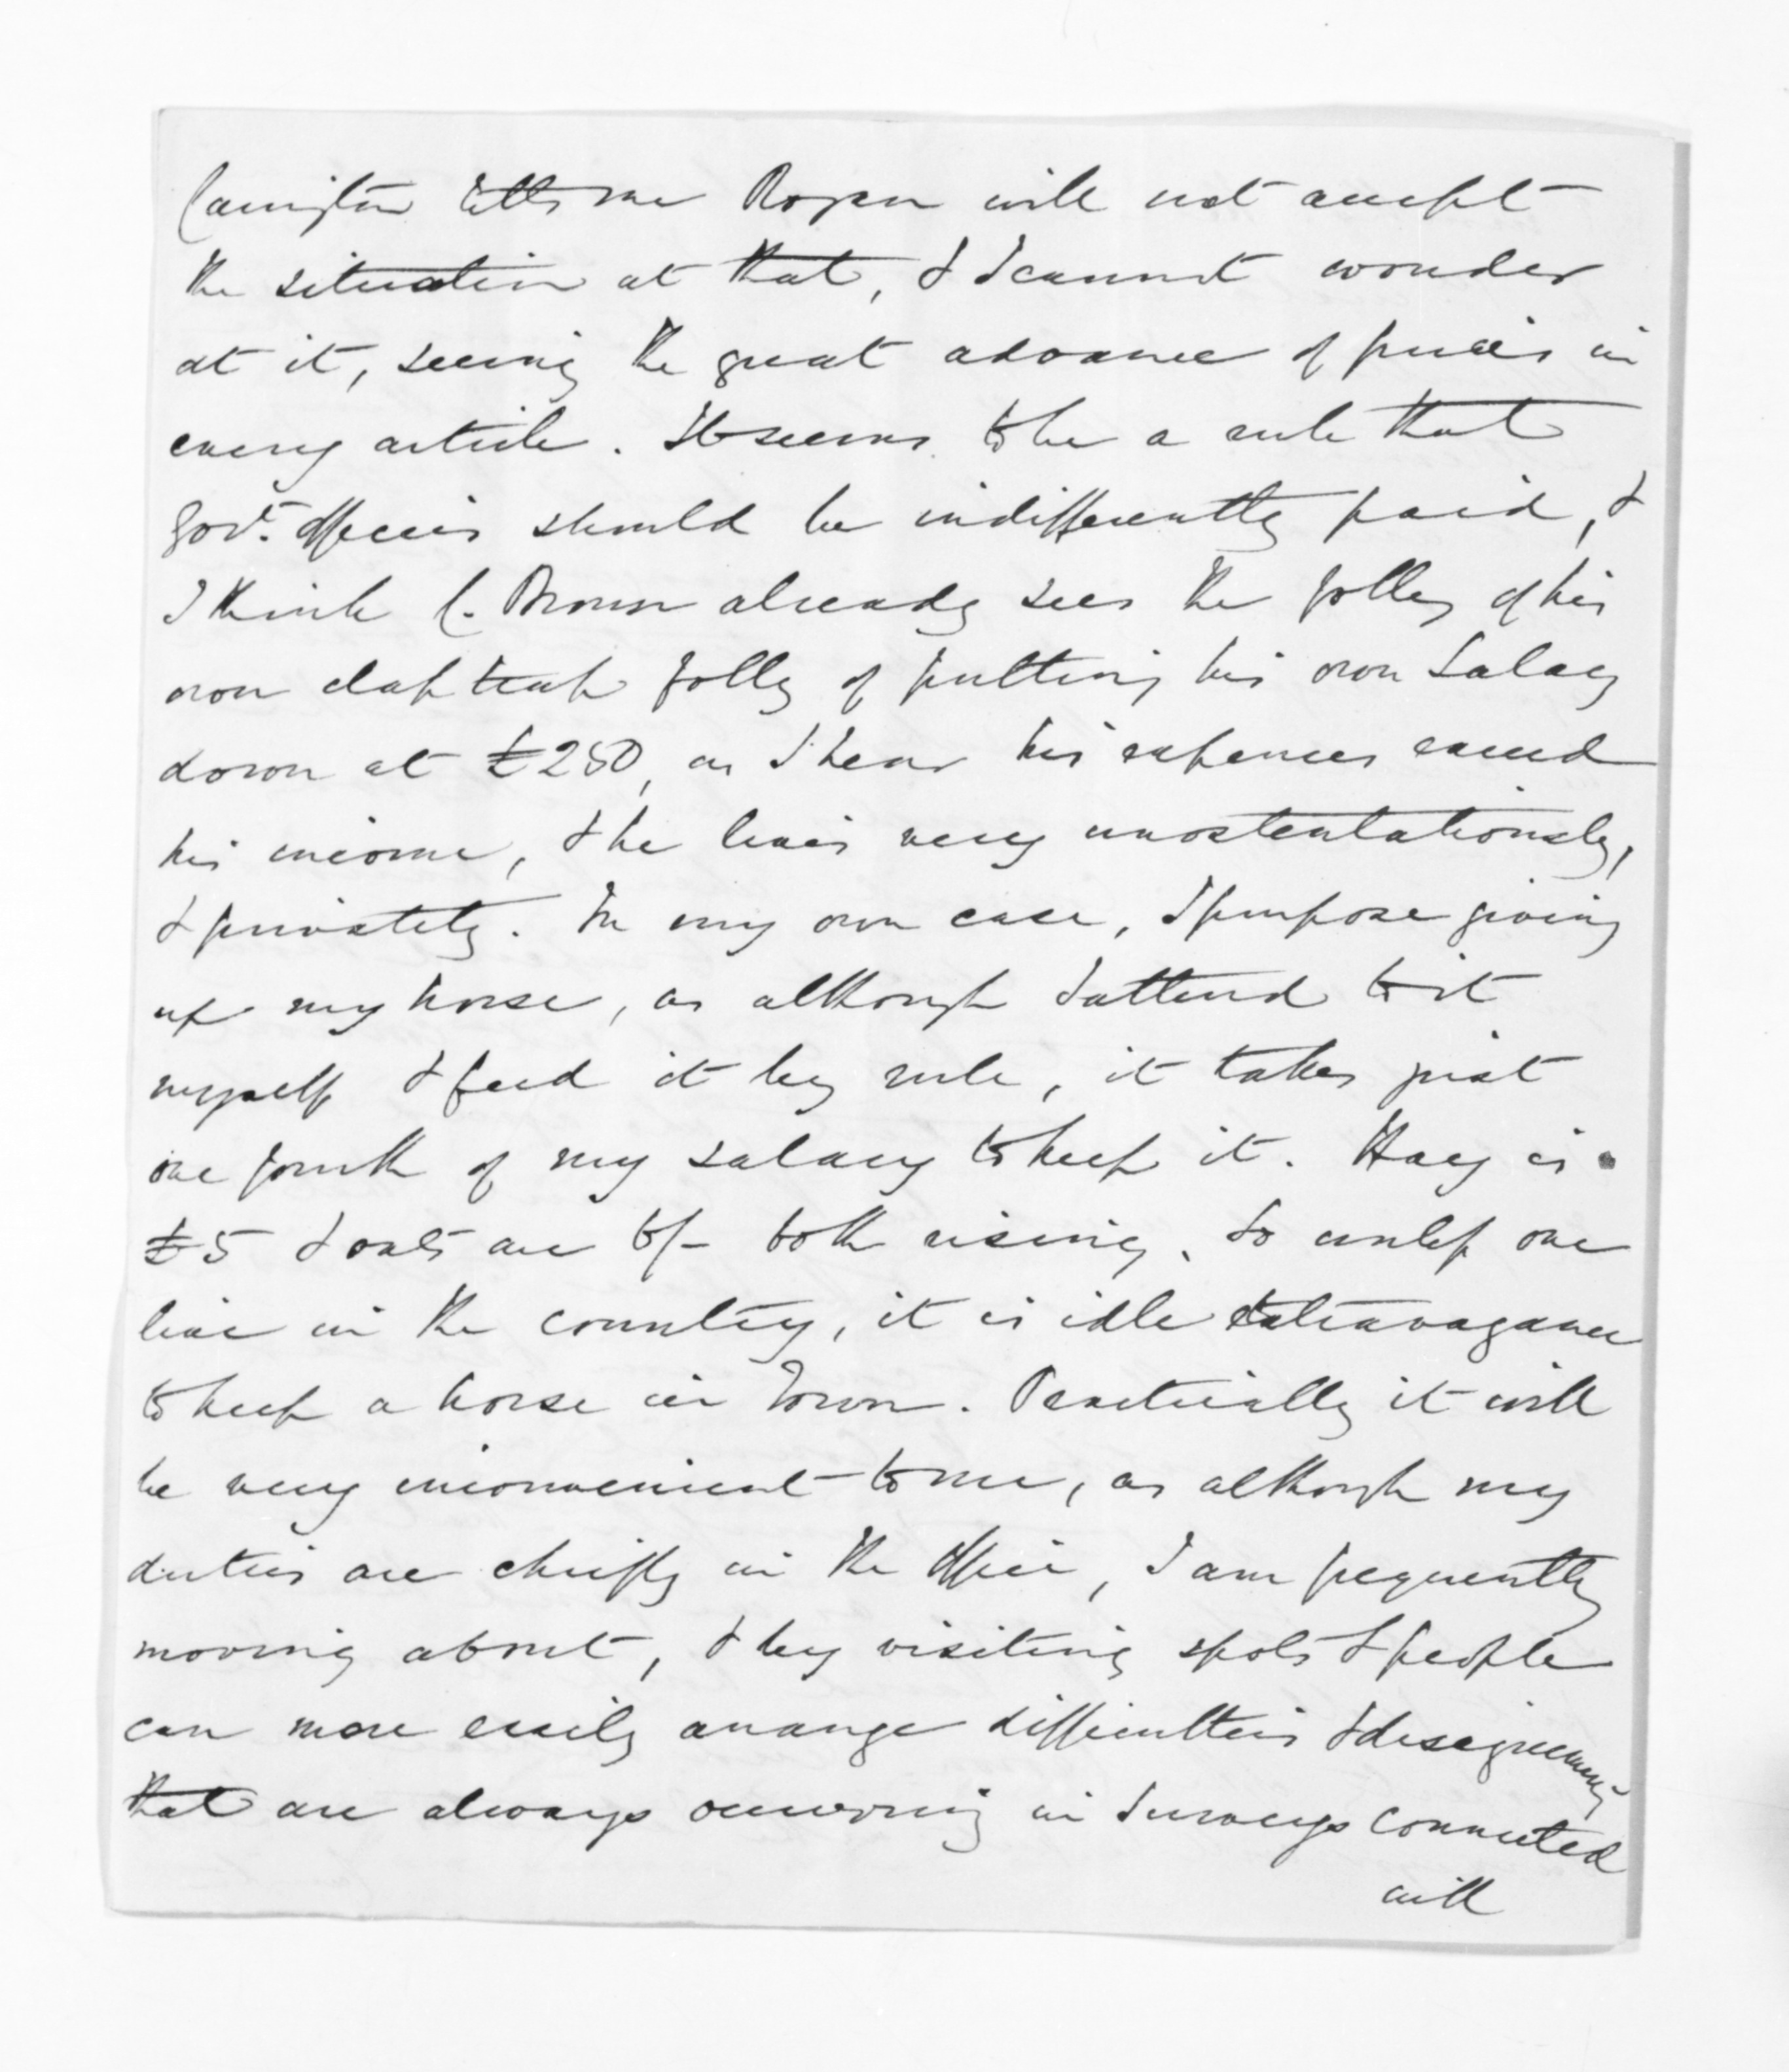 Carrington tells me Rogan will not accept
the situation at that, & I cannot wonder
at it, seeing the great advance of prices in
every article. It seems to be a rule that
Govt. officers should be indifferently paid, &
I think C. Brown already sees the folly of his
own clap trap folly of putting his own Salary
down at £250, as I hear his expenses exceed
his income, & he lives very unostentatiously,
& privately. In my own case, I purpose giving
up my horse, as although I attend to it
myself & feed it by rule, it takes just
one fourth of my salary to keep it. Hay is
£5 & oats are 6/- both rising. So unless one
live in the country, it is idle extravagance
to keep a horse in Town. Practically it will
be very inconvenient to me, as although my
duties are chiefly in the Office, I am frequently
moving about, & by visiting spots & people
can more easily arrange difficulties & disagreements
that are always occurring in Surveys connected
with